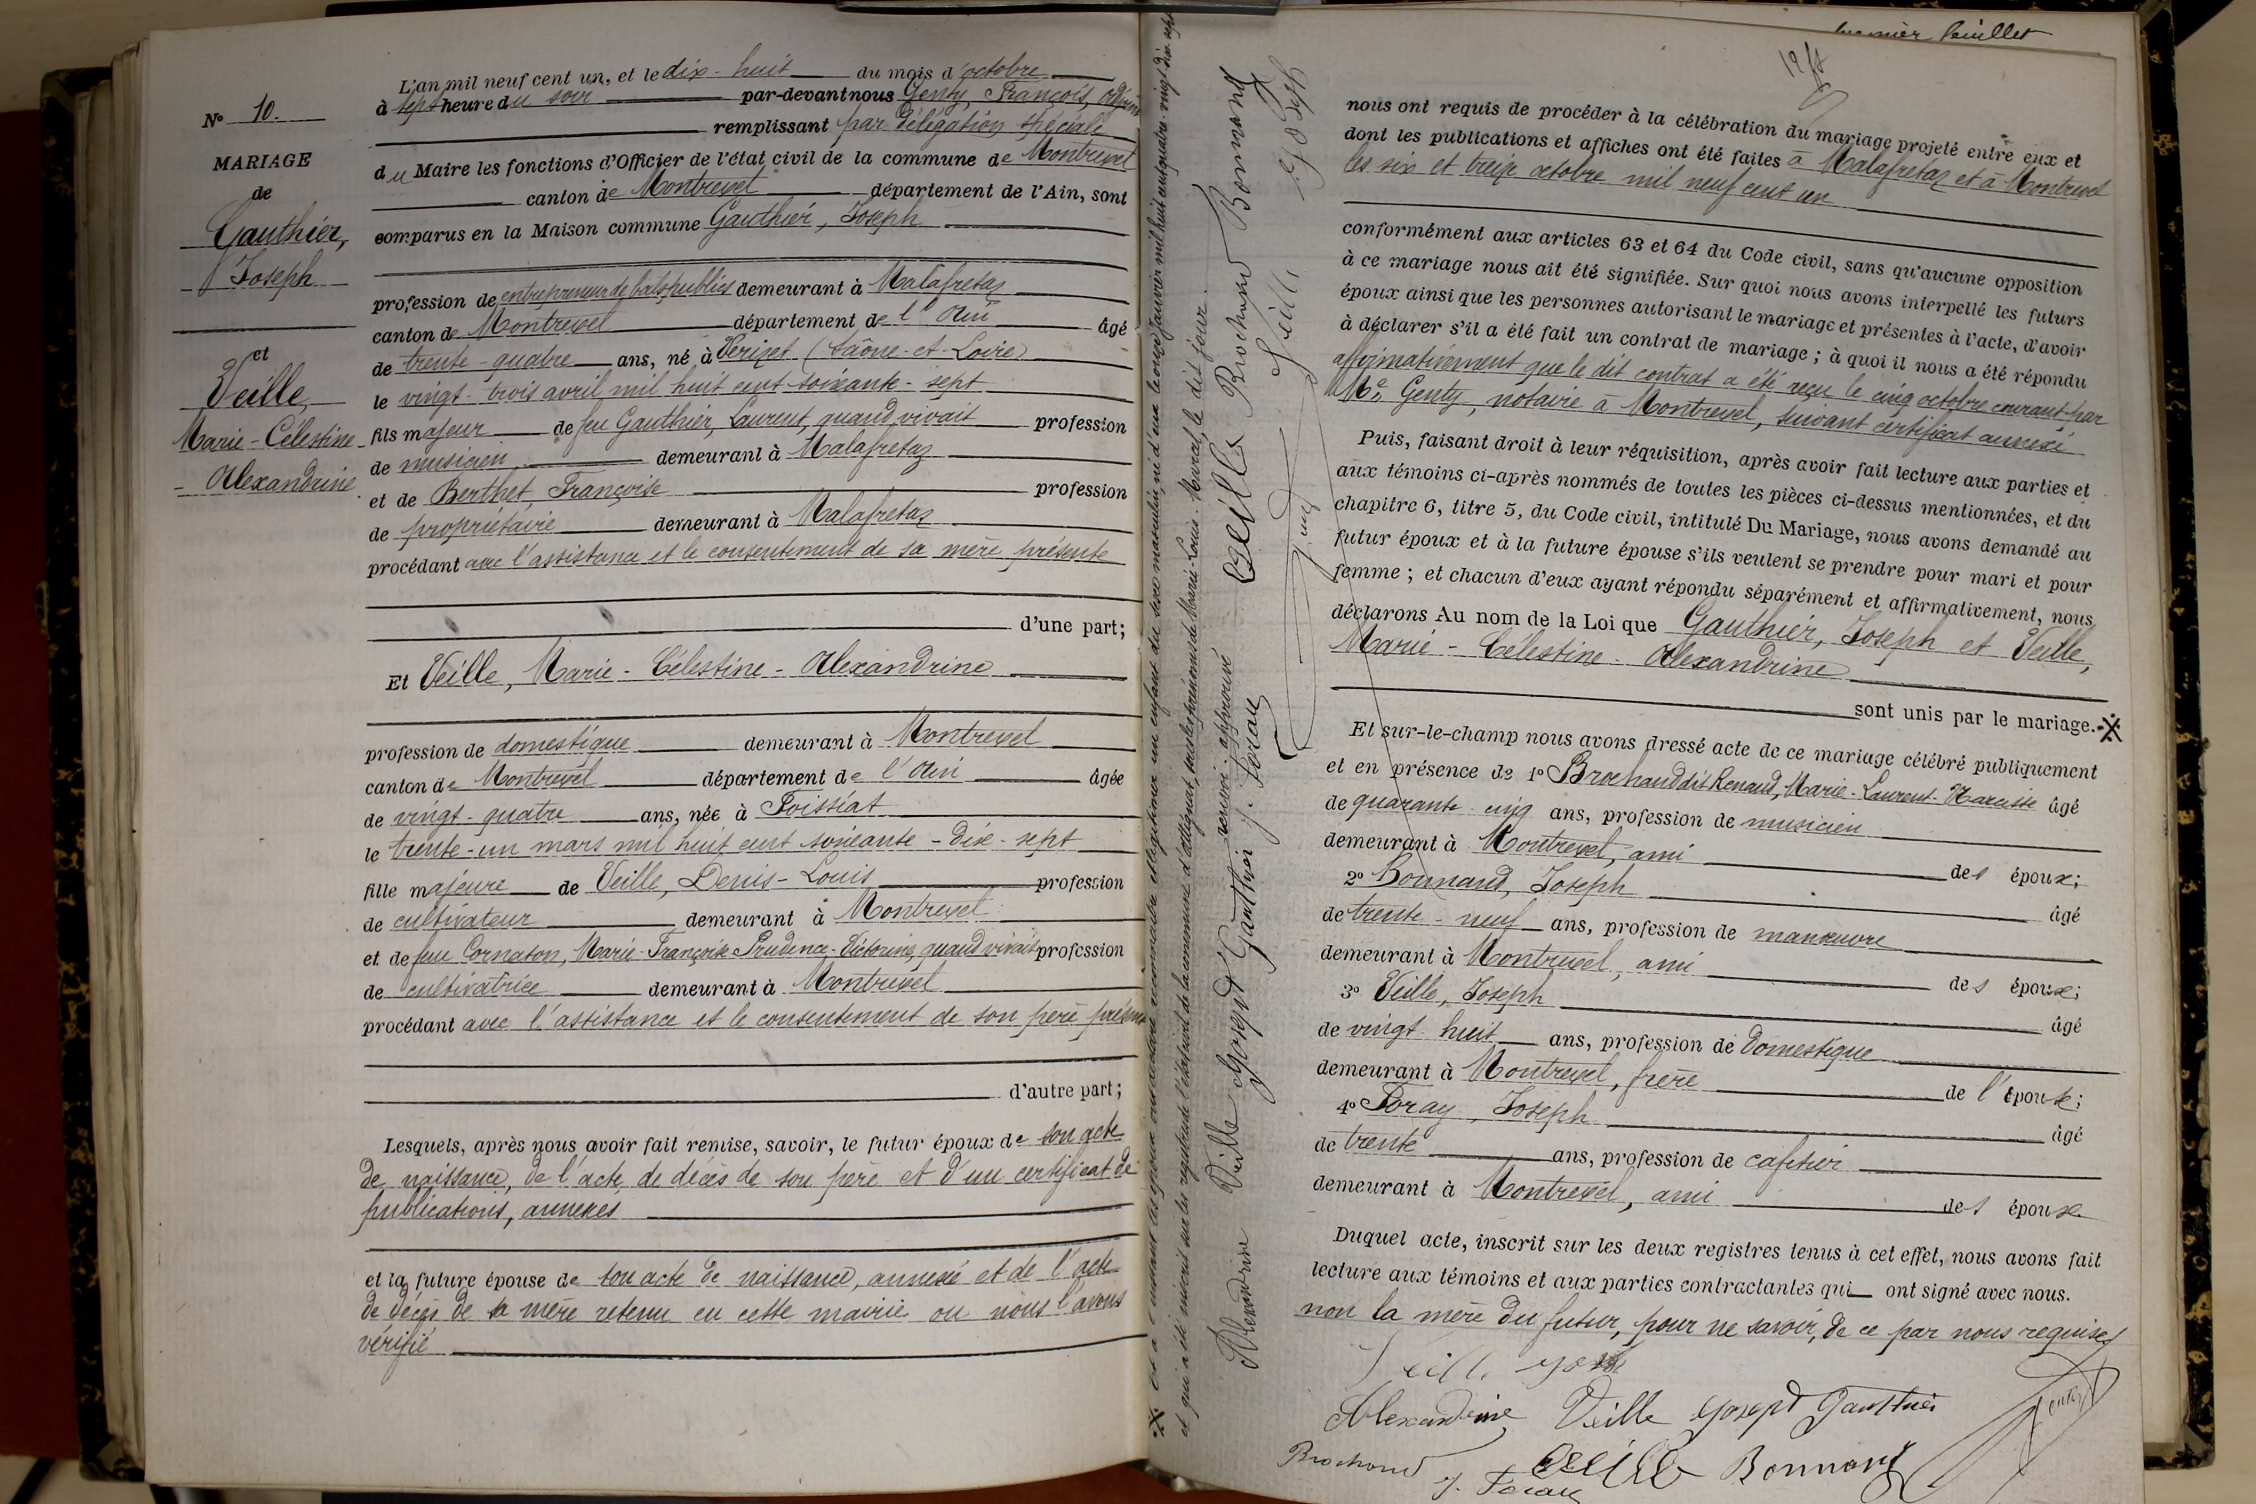 L'an mil neuf cent un, et le dix-huit du mois d'octobre
à sept heure du soir par-devant nous Genty, François, adjoint
remplissant par délégation spéciale
du Maire les fonctions d'Officier de l'état civil de la commune de Montrevel
canton de Montrevel département de l'Ain, sont
comparus en la Maison commune Gauthier, Joseph
profession de entrepreneur de bals publics demeurant à Malafretaz
canton de Montrevel département de l'Ain âgé
de trente-quatre ans, né à Verizet (Saône-et-Loire)
le vingt-trois avril mil huit cent soixante-sept
fils majeur de feu Gauthier, Laurent, quand vivait profession
de musicien demeurant à Malafretaz
et de Berthet, Françoise profession
de propriétaire demeurant à Malafretaz
procédant avec l'assistance et le consentement de sa mère présente
d'une part;
Et Veille, Marie-Célestine-Alexandrine
profession de domestique demeurant à Montrevel
canton de Montrevel département de l'Ain âgée
de vingt-quatre ans, née à Foissiat
le trente-un mars mil huit cent soixante-dix-sept
fille majeure de Veille, Denis-Louis profession
de cultivateur demeurant à Montrevel
et de feue Cornaton, Marie-Françoise-Prudence-Victorine, quand vivait profession
de cultivatrice demeurant à Montrevel
procédant avec l'assistance et le consentement de son père présent
d'autre part;
Lesquels, après nous avoir fait remise, savoir, le futur époux de son acte
de naissance, de l'acte de décès de son père et d'un certificat de
publications, annexés
et la future épouse de son acte de naissance, annexé et de l'acte
de décès de sa mère retenu en cette mairie où nous l'avons
vérifié
No 10.
MARIAGE
de
Gauthier,
Joseph
et
Veille,
Marie-Célestine
-Alexandrine
Et à l'instant les époux ont déclaré reconnaître et légitimer un enfant du sexe masculin, né d'eux le onze janvier mil huit cent quatre-vingt-dix-sept
et qui a été inscrit sur les registres de l'état civil de la commune d'Attignat, sous les prénoms de Marie-Louis. Montrevel, le dit jour.
renvoi approuvé
Alexandrine Veille Joseph Gauthier Veille Brochand Bonnand
J. Foray Genty Veille Joseph
premier feuillet
nous ont requis de procéder à la célébration du mariage projeté entre eux et
dont les publications et affiches ont été faites à Malafretaz et à Montrevel
les six et treize octobre mil neuf cent un
conformément aux articles 63 et 64 du Code civil, sans qu'aucune opposition
à ce mariage nous ait été signifiée. Sur quoi nous avons interpellé les futurs
époux ainsi que les personnes autorisant le mariage et présentes à l'acte, d'avoir
à déclarer s'il a été fait un contrat de mariage; à quoi il nous a été répondu
affirmativement que le dit contrat a été reçu le cinq octobre courant par
Me Genty, notaire à Montrevel, suivant certificat annexé
Puis, faisant droit à leur réquisition, après avoir fait lecture aux parties et
aux témoins ci-après nommés de toutes les pièces ci-dessus mentionnées, et du
chapitre 6, titre 5, du Code civil, intitulé Du Mariage, nous avons demandé au
futur époux et à la future épouse s'ils veulent se prendre pour mari et pour
femme; et chacun d'eux ayant répondu séparément et affirmativement, nous
déclarons Au nom de la Loi que Gauthier, Joseph et Veille,
Marie-Célestine-Alexandrine
sont unis par le mariage.
Et sur-le-champ nous avons dressé acte de ce mariage célébré publiquement
et en présence de 1o Brochand dit Renaud, Marie-Laurent-Narcisse âgé
de quarante-cinq ans, profession de musicien
demeurant à Montrevel, ami des époux;
2o Bonnand, Joseph âgé
de trente-neuf ans, profession de manœuvre
demeurant à Montrevel, ami des époux;
3o Veille, Joseph âgé
de vingt-huit ans, profession de domestique
demeurant à Montrevel, frère de l'épouse;
4o Foray, Joseph âgé
de trente ans, profession de cafetier
demeurant à Montrevel, ami des époux.
Duquel acte, inscrit sur les deux registres tenus à cet effet, nous avons fait
lecture aux témoins et aux parties contractantes qui ont signé avec nous.
non la mère du futur, pour ne savoir, de ce par nous requises
Veille Joseph
Alexandrine Veille Joseph Gauthier Genty
Brochand J. Foray Veille Bonnand